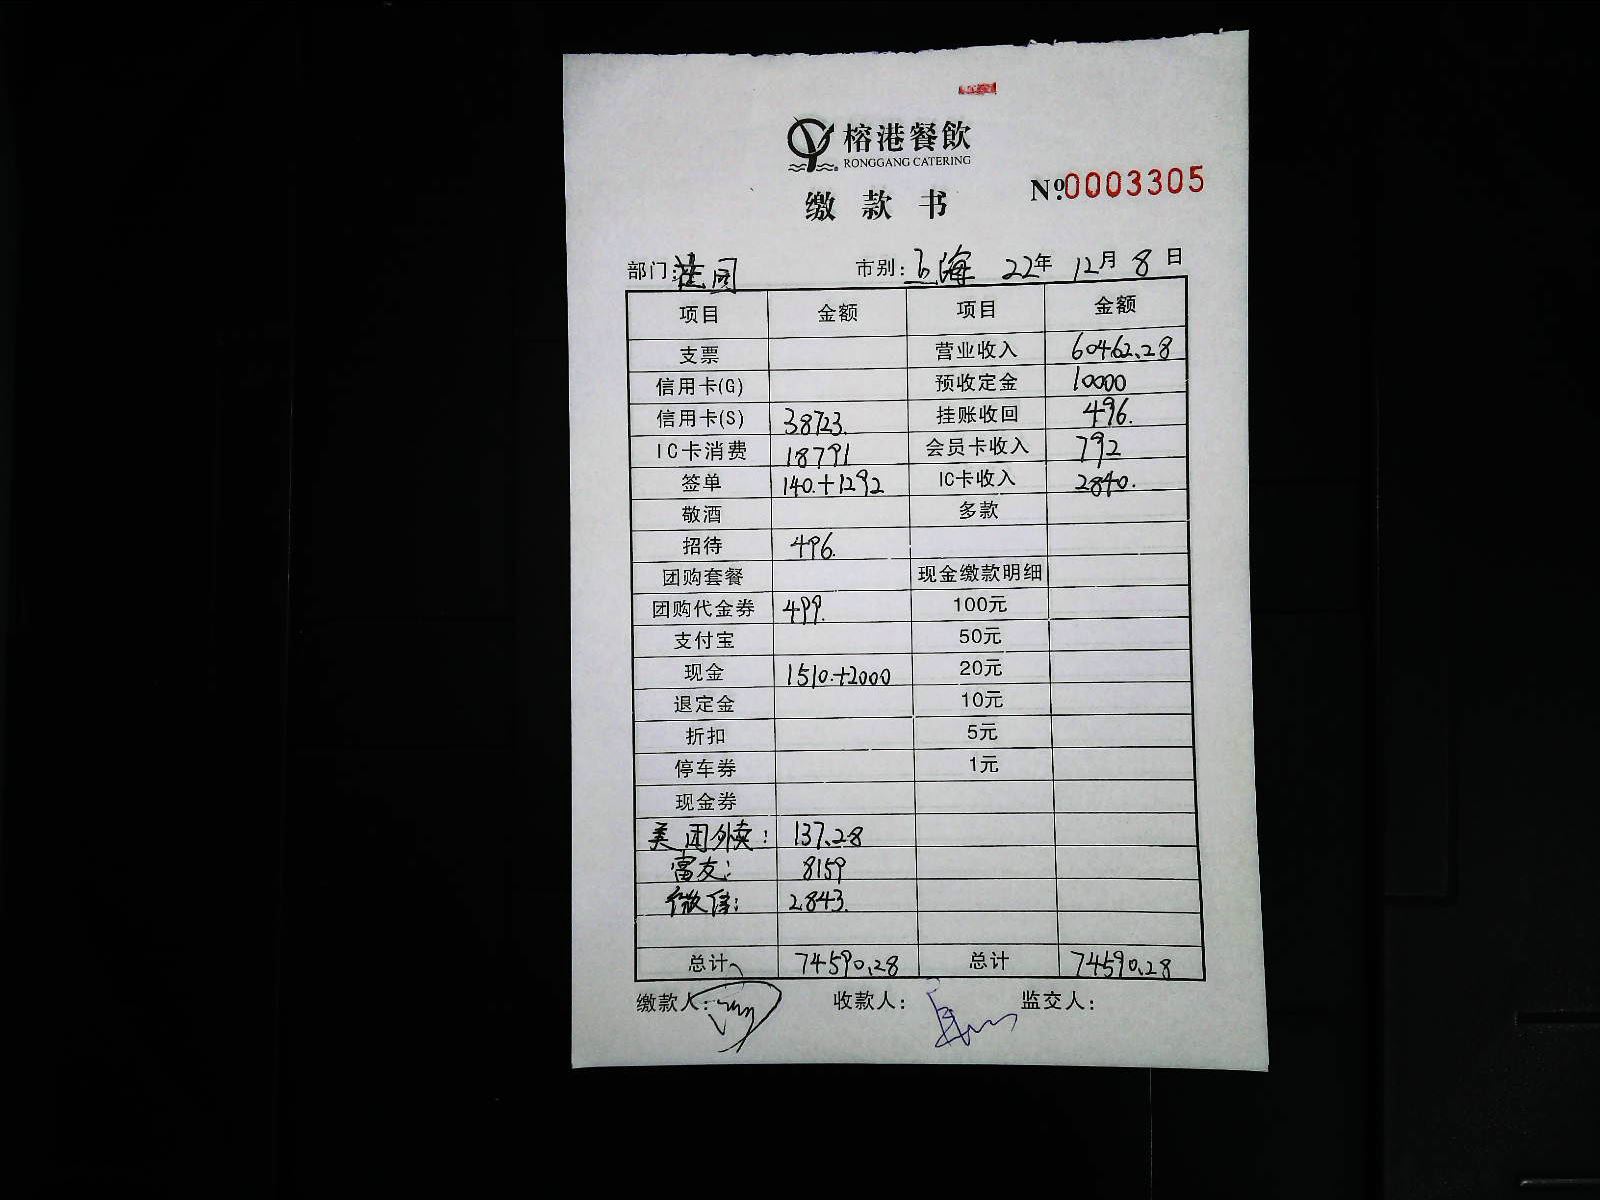 榕港餐飲
RONGGANG CATERING
缴款书
№0003305
部门: 市别:上海 22年12月8日
项目 金额 项目 金额
支票 营业收入 60462.28
信用卡(G) 预收定金 10000
信用卡(S) 38723. 挂账收回 496.
IC卡消费 18791 会员卡收入 792
签单 140.+1292 IC卡收入 2840.
敬酒 多款
招待 496.
团购套餐 现金缴款明细
团购代金券 499. 100元
支付宝 50元
现金 1510.+2000 20元
退定金 10元
折扣 5元
停车券 1元
现金券
美团外卖: 137.28
富友: 8159
微信: 2843.
总计 74590.28 总计 74590.28
缴款人: 收款人: 监交人: